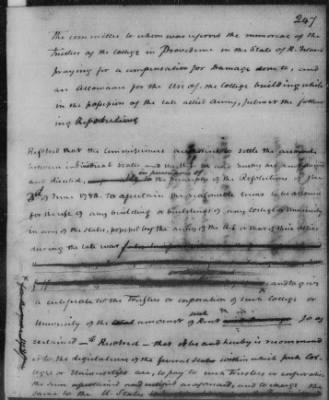 247
The committee to whom was referred the memorial of the
Trustees of the College in Providence in the State of R. Island
praying for a compensation for Damage done to, and
an Allowance for the Use of, the College building while
in the possession of the late allied Army, submit the follow-
ing Resolutions
Resolved that the Commissioners to settle the accounts
between individual States and the
and directed, in pursuance of the principles of the Resolutions of the
3d of June 1784. to ascertain the reasonable
for the use of any building or buildings of any College or University
in any of the states, possessed by the armies of the U.S. or that of their allies
during the late war
and to give
a certificate to the Trustees or corporation of such College or
University of the amount of such Rent so as
certained — Resolved — that it be and hereby is recommend
ed to the legislatures of the several States within which such Col
leges or Universities are, to pay to such Trustees or corporation
the sum ascertained and certified as aforesaid, and to charge the
same to the U. States